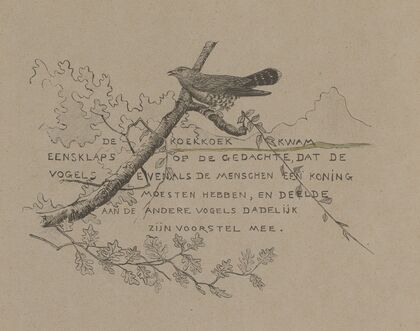 DE KOEKKOEK KWAM
EENSKLAPS OP DE GEDACHTE, DAT DE
VOGELS EVENALS DE MENSCHEN EEN KONING
MOESTEN HEBBEN, EN DEELDE
AAN DE ANDERE VOGELS DADELIJK
ZIJN VOORSTEL MEE.